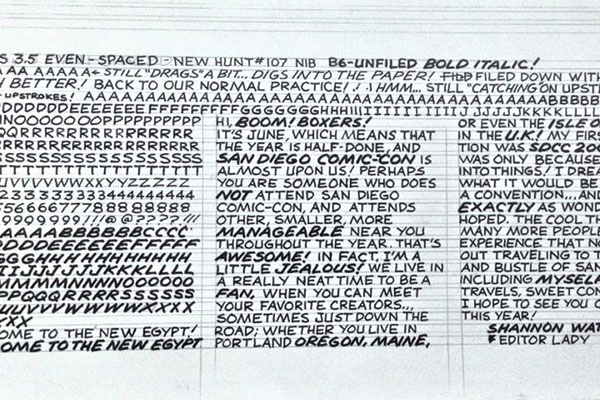 S 3.5 EVEN-SPACED - NEW HUNT#107 NIB B6-UNFILED BOLD ITALIC!
AA AAAAAA← STILL "DRAGS" A BIT... DIGS INTO THE PAPER! FILED DOWN WITH
H BETTER! BACK TO OUR NORMAL PRACTICE! HMM... STILL "CATCHING" ON UPST
UPSTROKES! AAAAAAAAAAAAAAAAAAAAAAAAAAAAAAAAAAAAAAAABBBBB
DDDDDDDEEEEEEEFFFFFFFFGGGGGGGHHHIIIIIIIIIIIIIIJJJJJJKKKKLLLL
NNOOOOOOPPPPPPPPPPPP
QQRRRRRRRRRRRRRRRRR
SSSSSSSSSSSSSSSSSSSS
TTTTTTTTTTTTTTTTTTTT
UVVVVVWWXXYYZZZZZ
233333333344444444
56666777888888888
9999999!!!@@????!!!
AAAABBBBBBCCCC
DDDDEEEEEEFFFFF
GGGHHHHHHHHHHH
IIJJJJJJKKKLLLL
MMMMNNNNOOOOOO
PPQQQRRRRSSSSSS
UUVVVVWWWXXXX
XXX
OME TO THE NEW EGYPT!
OME TO THE NEW EGYPT
HI, BOOM! BOXERS!
IT'S JUNE, WHICH MEANS THAT
THE YEAR IS HALF-DONE, AND
SAN DIEGO COMIC-CON IS
ALMOST UPON US! PERHAPS
YOU ARE SOMEONE WHO DOES
NOT ATTEND SAN DIEGO
COMIC-CON, AND ATTENDS
OTHER, SMALLER, MORE
MANAGEABLE NEAR YOU
THROUGHOUT THE YEAR. THAT'S
AWESOME! IN FACT, I'M A
LITTLE JEALOUS! WE LIVE IN
A REALLY NEAT TIME TO BE A
FAN, WHEN YOU CAN MEET
YOUR FAVORITE CREATORS,,
SOMETIMES JUST DOWN THE
ROAD; WHETHER YOU LIVE IN
PORTLAND OREGON, MAINE,
OR EVEN THE ISLE O
IN THE U.K.! MY FIRS
TION WAS SDCC 200
WAS ONLY BECAUSE
INTO THINGS! I DREA
WHAT IT WOULD BE
A CONVENTION...AND
EXACTLY AS WOND
HOPED. THE COOL TH
MANY MORE PEOPLE
EXPERIENCE THAT NO
OUT TRAVELING TO T
AND BUSTLE OF SAN
INCLUDING MYSELF
TRAVELS, SWEET CON
I HOPE TO SEE YOU O
THIS YEAR!
SHANNON WAT
EDITOR LADY